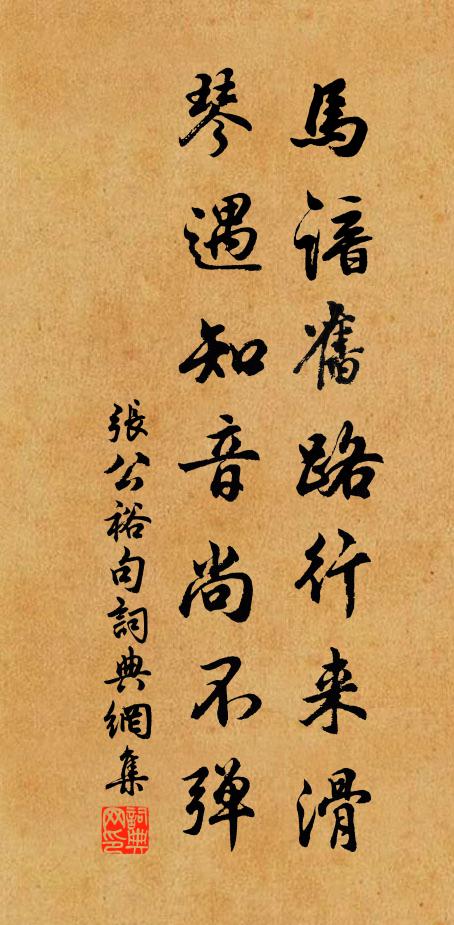 馬諳舊路行来滑
琴遇知音尚不弹
張公裕句詞典網集
詞典網印